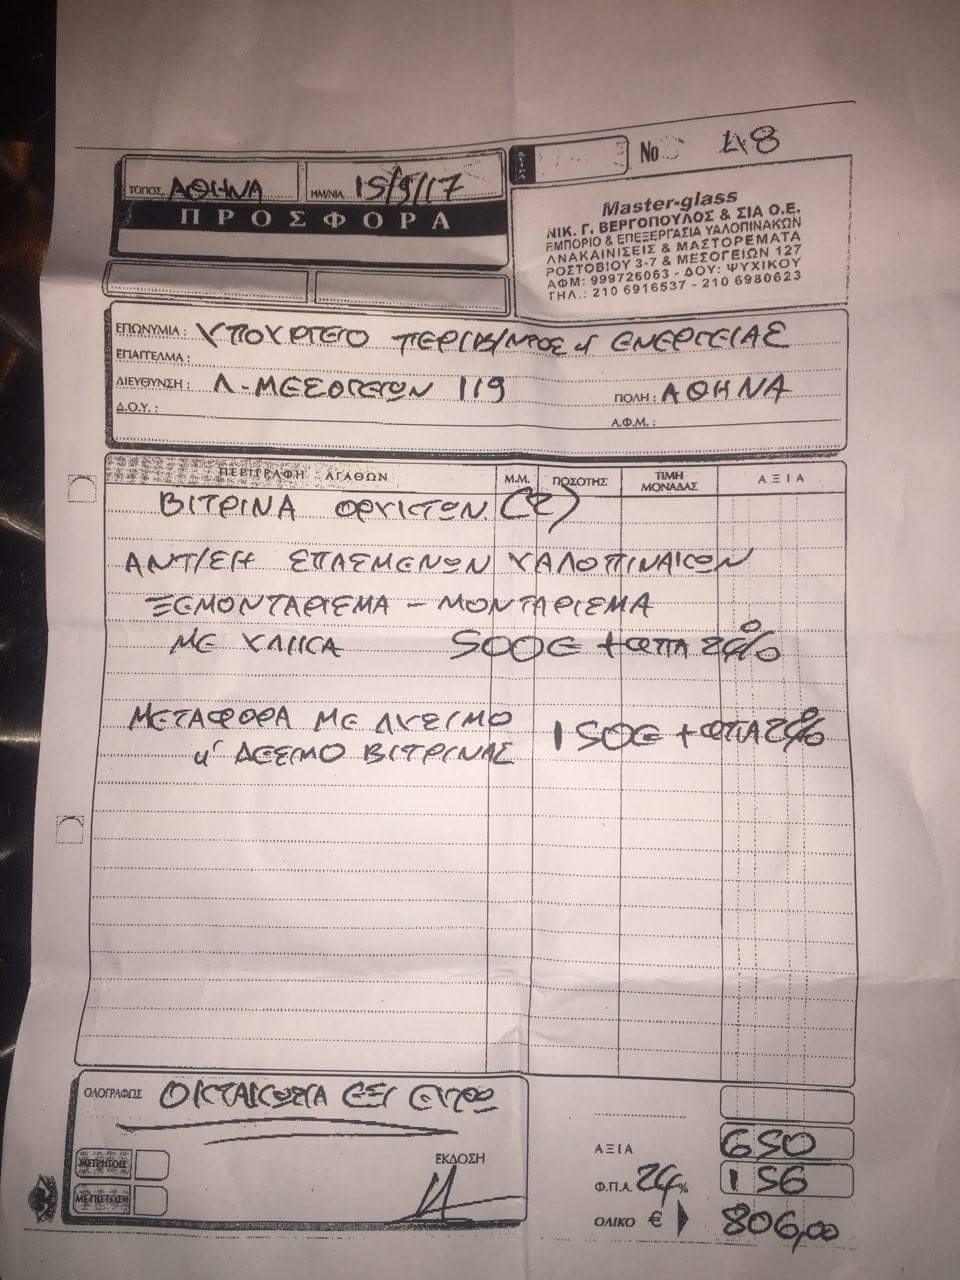 ΤΟΠΟΣ ΑΘΗΝΑ ΗΜ/ΝΙΑ 15/9/17
ΠΡΟΣΦΟΡΑ
ΣΕΙΡΑ Νο 48
Master-glass
ΝΙΚ. Γ. ΒΕΡΓΟΠΟΥΛΟΣ & ΣΙΑ Ο.Ε.
ΕΜΠΟΡΙΟ & ΕΠΕΞΕΡΓΑΣΙΑ ΥΑΛΟΠΙΝΑΚΩΝ
ΑΝΑΚΑΙΝΙΣΕΙΣ & ΜΑΣΤΟΡΕΜΑΤΑ
ΡΟΣΤΟΒΙΟΥ 3-7 & ΜΕΣΟΓΕΙΩΝ 127
ΑΦΜ: 999726063 - ΔΟΥ: ΨΥΧΙΚΟΥ
ΤΗΛ.: 210 6916537 - 210 6980623
ΕΠΩΝΥΜΙΑ : ΥΠΟΥΡΓΕΙΟ ΠΕΡΙΒ/ΝΤΟΣ κ ΕΝΕΡΓΕΙΑΣ
ΕΠΑΓΓΕΛΜΑ :
ΔΙΕΥΘΥΝΣΗ : Λ-ΜΕΣΟΓΕΙΩΝ 119 ΠΟΛΗ : ΑΘΗΝΑ
Δ.Ο.Υ. : Α.Φ.Μ. :
ΠΕΡΙΓΡΑΦΗ ΑΓΑΘΩΝ Μ.Μ. ΠΟΣΟΤΗΣ ΤΙΜΗ ΜΟΝΑΔΑΣ ΑΞΙΑ
ΒΙΤΡΙΝΑ ΟΡΥΚΤΩΝ (2)
ΑΝΤ/ΣΗ ΣΠΑΣΜΕΝΩΝ ΥΑΛΟΠΙΝΑΚΩΝ
ΞΕΜΟΝΤΑΡΙΣΜΑ - ΜΟΝΤΑΡΙΣΜΑ
ΜΕ ΥΛΙΚΑ 500€ + ΦΠΑ 24%
ΜΕΤΑΦΟΡΑ ΜΕ ΛΥΣΙΜΟ 150€ + ΦΠΑ 24%
κ' ΔΕΣΙΜΟ ΒΙΤΡΙΝΑΣ
ΟΛΟΓΡΑΦΩΣ ΟΚΤΑΚΟΣΙΑ ΕΞΙ ΕΥΡΩ
ΜΕΤΡΗΤΟΙΣ
ΜΕ ΠΙΣΤΩΣΗ
ΕΚΔΟΣΗ
ΑΞΙΑ 650
Φ.Π.Α. 24% 156
ΟΛΙΚΟ € 806,00